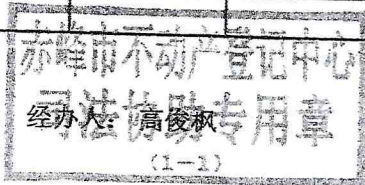 赤峰市不动产登记中心
司法协助专用章
经办人：高俊枫
（1—1）